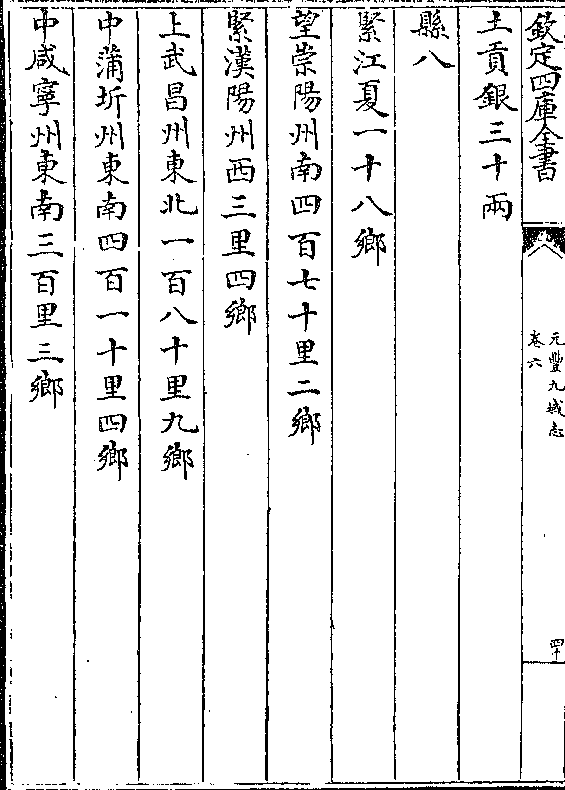 欽定四庫全書
元豐九域志
卷六
四十
土貢銀三十兩
縣八
緊江夏一十八鄉
望崇陽州南四百七十里二鄉
緊漢陽州西三里四鄉
上武昌州東北一百八十里九鄉
中蒲圻州東南四百一十里四鄉
中咸寧州東南三百里三鄉